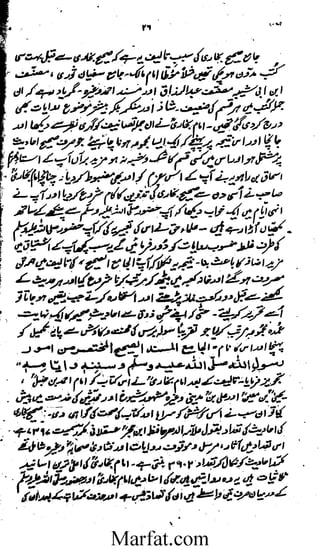 ۲۶
جامع صحیح بخاری کی سبب تالیف یہ ہے کہ صحیح بخاری سے قبل بہت سی
کتب مدون ہو چکی تھیں مثلاً مؤطا امام مالک، جامع سفیان ثوری، مصنف
ابن ابی شیبہ مصنف عبدالرزاق اور مسند احمد وغیرہ مگر یاد رہے کہ ان
جملہ کتب میں ہر قسم کی ضعیف، شاذ اور منکر بلکہ بیشتر موضوع روایات بھی
درج کر دی گئی تھیں۔ امام بخاری نے ان جملہ تصانیف کو گہری نظر سے دیکھا اور
جانچا اور اس نتیجہ پر پہنچے کہ ایک ایسا مجموعہ ہونا چاہئے جو صرف صحیح احادیث
پر مشتمل ہو اور اس میں کسی قسم کا شک و شبہ نہ ہو مزید برآں آپ کے استاد
اسحاق بن راہویہ نے آپ کے اس عزم کو اور بھی مضبوط کر دیا۔ چنانچہ امام بخاری
صاحب نے اسی دن سے صحیح بخاری کی تدوین کا کام شروع کر دیا اور آپ نے
انہی ایام میں ایک خواب دیکھا کہ آپ حضور صلی اللہ علیہ وسلم سے پنکھے کے ساتھ
مکھیاں اڑا رہے ہیں۔ علماء حق نے اس کی تعبیر یہ کی کہ آپ حضور صلی اللہ علیہ وسلم
کی طرف غلط منسوب روایات کو دور فرمائیں گے یہ سبب بھی آپ کے اشتیاق میں
مزید اضافہ کا باعث بنا۔ نتیجہ یہ نکلا کہ آپ الجامع الصحیح کی تالیف میں ہمہ تن
مصروف ہو گئے اور خانہ کعبہ میں بیٹھ کر مرتب کرنا شروع کیا اور ہر حدیث کے
لکھنے سے قبل دو رکعت نماز پڑھتے اور استخارہ کرتے جب یقین ہو جاتا تو
اسے تحریر کر لیتے۔ حتیٰ کہ اپنے فنی ذوق سے احادیث صحیحہ کا ایک نہایت
عمدہ مجموعہ مرتب کیا جو تقریباً سولہ برس کی محنت و کاوش سے پایہ تکمیل کو
پہنچا اور اس کا نام۔ الجامع المسند الصحیح المختصر من امور
رسول اللہ صلی اللہ علیہ وسلم و سننہ و ایامہ
تجویز فرمایا۔ تالیف کے بعد امام بخاری نے اس کتاب کو امام احمد بن حنبل،
یحییٰ بن معین اور علی بن مدینی وغیرہ مشہور شیوخ اور محدثین کی خدمت میں پیش
کیا تو ان سب نے اس کوشش کو سراہا اور کتاب کی صحت کی گواہی دی۔ صحیح بخاری
کی احادیث کی تعداد بقول علامہ الدہر حافظ ابن حجر عسقلانی ۷۳۹۷ ہے
اس تعداد میں آثار، مرسل و موقوف روایات اور فتاویٰ صحابہ وغیرہ شامل تھے
مکرر احادیث کو نکال کر تعداد ۲۶۰۲ بنتی ہے۔ امام بخاری کی اعلیٰ ترین اسانید
ثلاثیات ہیں یہ وہ روایتیں ہیں جن کی اسناد میں امام بخاری اور حضور صلی اللہ علیہ وسلم
کے درمیان صرف تین واسطے ہیں ان کی تعداد بائیس ہے اور حذف مکررات کے بعد ان کی
Marfat.com